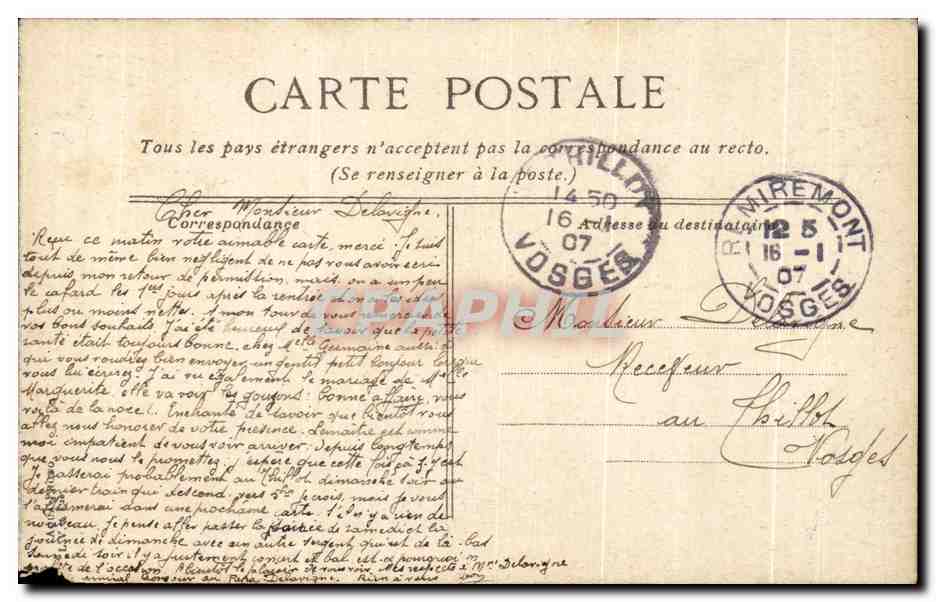 CARTE POSTALE
Tous les pays étrangers n'acceptent pas la correspondance au recto.
(Se renseigner à la poste.)
Cher Monsieur Delavigne,
Correspondance
Adresse du destinataire
THILLOT
14 50
16 -1
07
VOSGES
REMIREMONT
12 5
16 -1
07
VOSGES
Monsieur Delavigne
Receveur
au Thillot
Vosges
Reçu ce matin votre aimable carte, merci. Je suis
tout de même bien négligent de ne pas vous avoir écrit
depuis mon retour de permission, mais on a un peu
le cafard les 1ers jours après la rentrée
plus ou moins nettes. A mon tour de vous
vos bons souhaits. J'ai été heureux de savoir que la petite
santé était toujours bonne, chez Melle Germaine aussi à
qui vous voudrez bien envoyer un gentil petit bonjour lorsque
vous lui écrirez. J'ai vu également le mariage de Melle
Marguerite, elle va voir les bonne affaire, vous
voilà de la noce. Enchanté de savoir que bientôt vous
allez nous honorer de votre présence. Lemaitre est comme
moi impatient de vous voir arriver. Depuis longtemps
que vous nous le promettez, j'espère que cette fois ça y est
Je passerai probablement au Thillot dimanche soir au
dernier train qui descend vers 5h je crois, mais je vous
dans une prochaine carte s'il n'y a rien de
nouveau. Je pense aller passer la soirée de samedi et la
journée de dimanche avec un autre sergent qui est de là-bas
samedi soir il y a justement concert et bal, est-ce pourquoi n
de l'occasion A bientôt le plaisir de vous voir, Mes respects à Mme Delavigne
amical bonjour au Papa Delavigne. Bien à vous